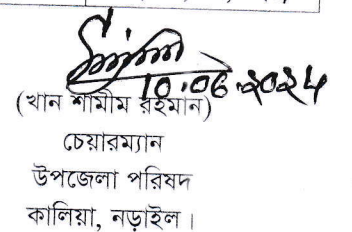 10.06.2024
(খান শামীম রহমান)
চেয়ারম্যান
উপজেলা পরিষদ
কালিয়া, নড়াইল।